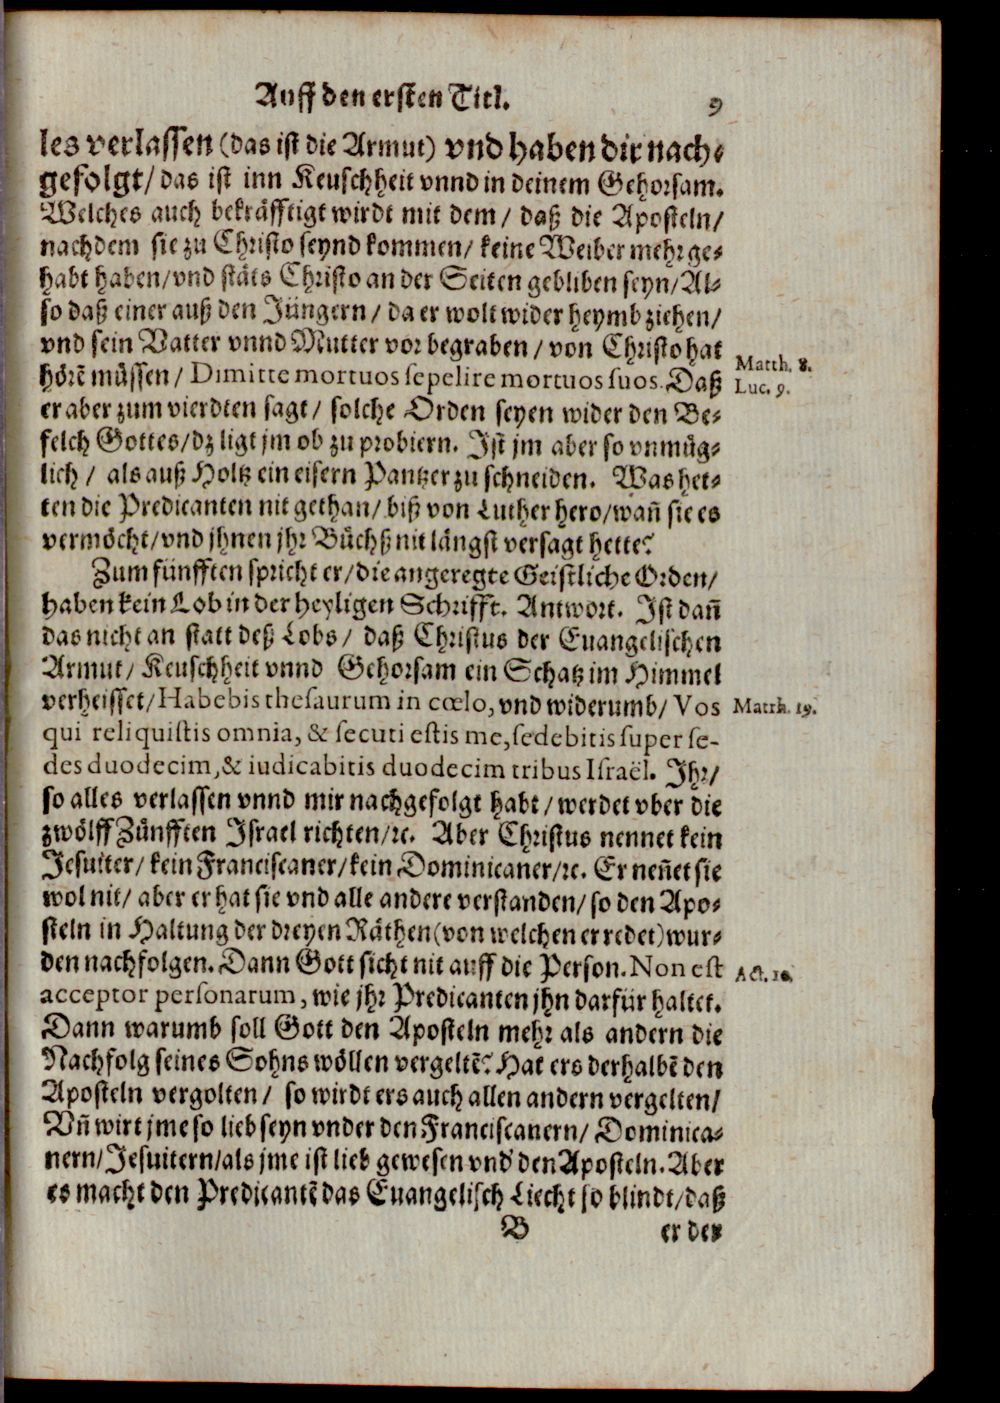 Auff den ersten Titl. 9
les verlassen (das ist die Armut) vnd haben dir nach-
gefolgt/ das ist inn Keuschheit vnnd in deinem Gehorsam.
Welches auch bekräfftigt wirdt mit dem/ daß die Aposteln/
nachdem sie zu Christo seynd kommen/ keine Weiber mehr ge-
habt haben/ vnd stäts Christo an der Seiten gebliben seyn/ Al-
so daß einer auß den Jüngern/ da er wolt wider heymb ziehen/
vnd sein Vatter vnnd Mutter vor begraben/ von Christo hat
hörẽ müssen/ Dimitte mortuos sepelire mortuos suos. Daß
Matth. 8.
Luc. 9.
er aber zum vierdten sagt/ solche Orden seyen wider den Be-
felch Gottes/ dz ligt jm ob zu probiern. Ist jm aber so vnmüg-
lich/ als auß Holtz ein eisern Pantzer zu schneiden. Was het-
ten die Predicanten nit gethan/ biß von Luther hero/ wañ sie es
vermöcht/ vnd jhnen jhr Büchß nit längst versagt hette?
Zum fünfften spricht er/ die angeregte Geistliche Orden/
haben kein Lob in der heyligen Schrifft. Antwort. Ist dañ
das nicht an statt deß Lobs/ daß Christus der Euangelischen
Armut/ Keuschheit vnnd Gehorsam ein Schatz im Himmel
verheisset/ Habebis thesaurum in cœlo, vnd widerumb/ Vos
Matth. 19.
qui reliquistis omnia, & secuti estis me, sedebitis super se-
des duodecim, & iudicabitis duodecim tribus Israël. Ihr/
so alles verlassen vnnd mir nachgefolgt habt/ werdet vber die
zwölff Zünfften Israel richten/ ꝛc. Aber Christus nennet kein
Jesuiter/ kein Franciscaner/ kein Dominicaner/ ꝛc. Er neñet sie
wol nit/ aber er hat sie vnd alle andere verstanden/ so den Apo-
steln in Haltung der dreyen Räthen (von welchen er redet) wur-
den nachfolgen. Dann Gott sicht nit auff die Person. Non est
Act. 10.
acceptor personarum, wie jhr Predicanten jhn darfür haltet.
Dann warumb soll Gott den Aposteln mehr als andern die
Nachfolg seines Sohns wöllen vergeltẽ? Hat ers derhalbẽ den
Aposteln vergolten/ so wirdt ers auch allen andern vergelten/
Vñ wirt jme so lieb seyn vnder den Franciscanern/ Dominica-
nern/ Jesuitern/ als jme ist lieb gewesen vnd' den Aposteln. Aber
es macht den Predicantẽ das Euangelisch Liecht so blindt/ daß
B er der